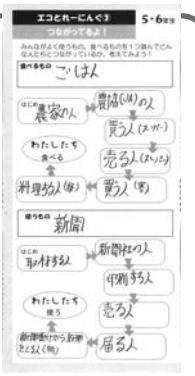 エコとれーにんぐ③
5・6年生
つながってるよ!
みんながよく使うもの、食べるものを1つ選んでごらん
なんとどうつながっているか、考えてみよう!
食べるもの
ごはん
はじめ
農家の人
農協(JA)の人
買う人(スーパー)
売る人(スーパー)
買う人(家)
料理する人(母)
わたしたち
食べる
使うもの
新聞
はじめ
取材する人
新聞社の人
印刷する人
売る人
届る人
新聞受けから新聞
をとる人(母)
わたしたち
使う